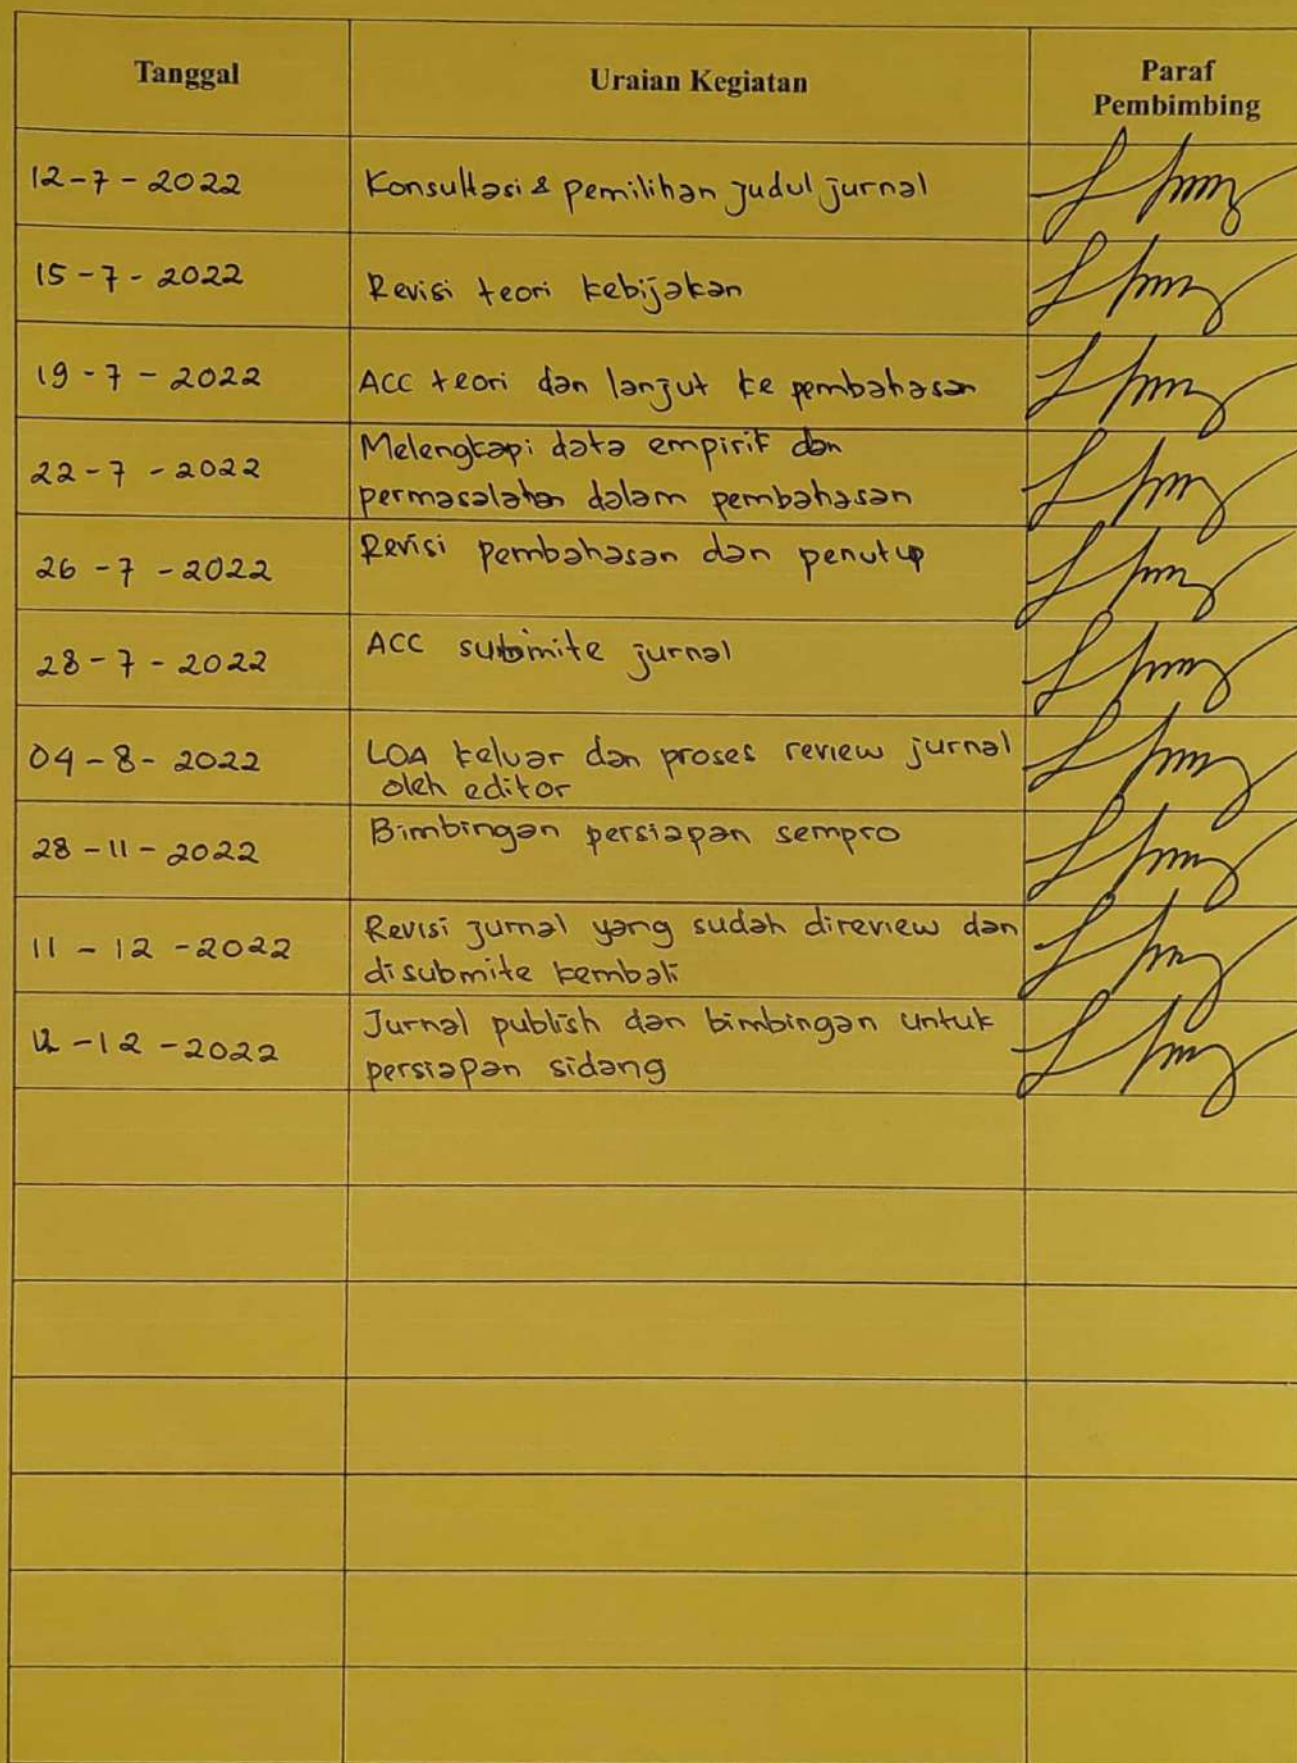 Tanggal
Uraian Kegiatan
Paraf
Pembimbing
12-7-2022
Konsultasi & pemilihan judul jurnal
15-7-2022
Revisi teori kebijakan
19-7-2022
ACC teori dan lanjut ke pembahasan
22-7-2022
Melengkapi data empirik dan
permasalahan dalam pembahasan
26-7-2022
Revisi pembahasan dan penutup
28-7-2022
ACC submite jurnal
04-8-2022
LOA keluar dan proses review jurnal
oleh editor
28-11-2022
Bimbingan persiapan sempro
11-12-2022
Revisi jurnal yang sudah direview dan
disubmite kembali
-12-2022
Jurnal publish dan bimbingan untuk
persiapan sidang